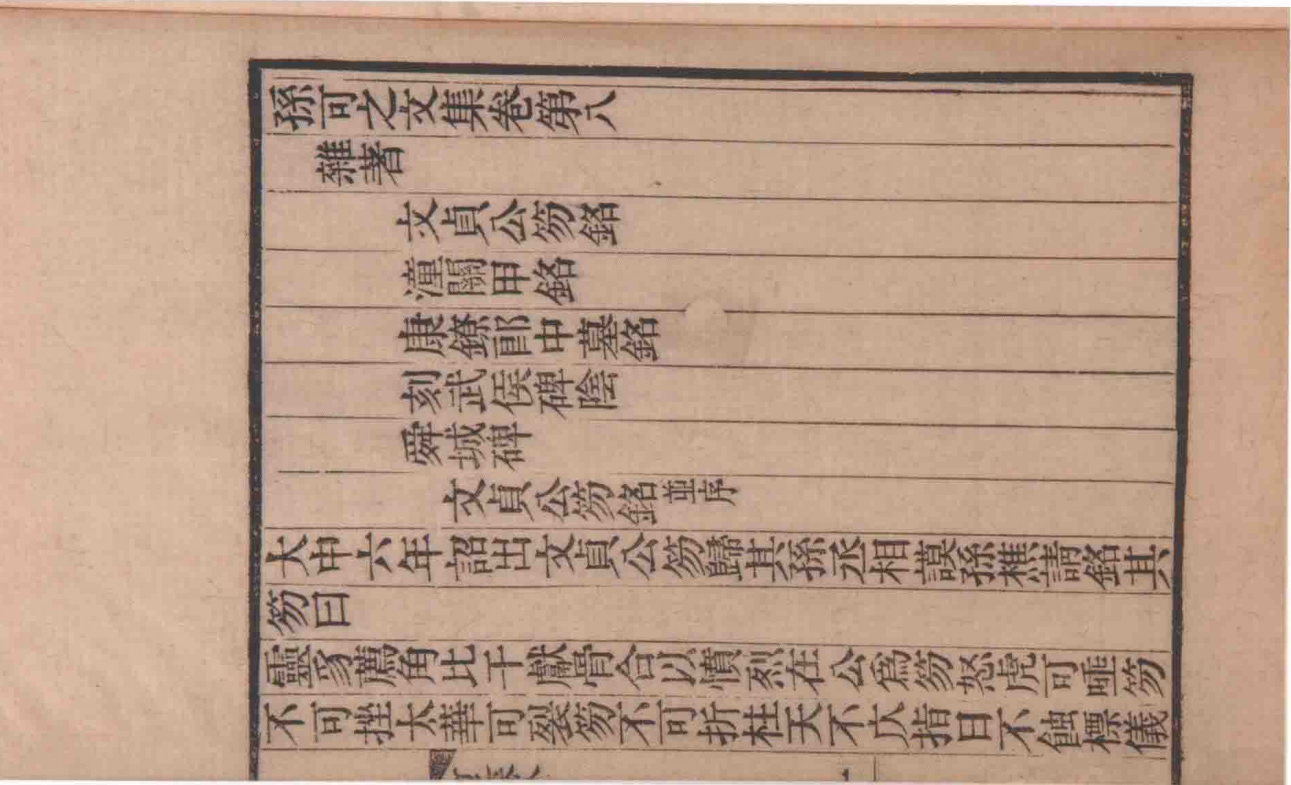 孫可之文集卷第八
雜著
文貞公笏銘
潼關甲銘
康鐐郎中墓銘
刻武侯碑陰
舜城碑
文貞公笏銘並序
大中六年詔出文貞公笏歸其孫丞相謨孫樵請銘其
笏曰
靈豸薦角比干獻骨合以憤烈在公爲笏怒虎可唾笏
不可挫太華可裂笏不可折柱天不仄指日不蝕標儀